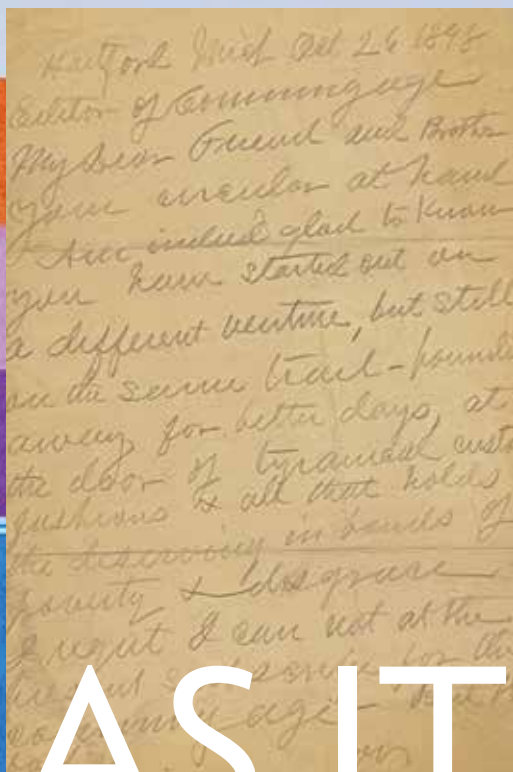 Hartford Mich Oct 26 1898
Editor of Coming age
My Dear Friend and Brother
your circular at hand
Am indeed glad to know
you have started out on
a different venture, but still
on the same trail - pounding
away for better days, at
the door of tyranical
fashions & all that holds
the deserving in bands of
poverty & disgrace
I regret I can not at the
present subscribe for the
coming age
AS IT